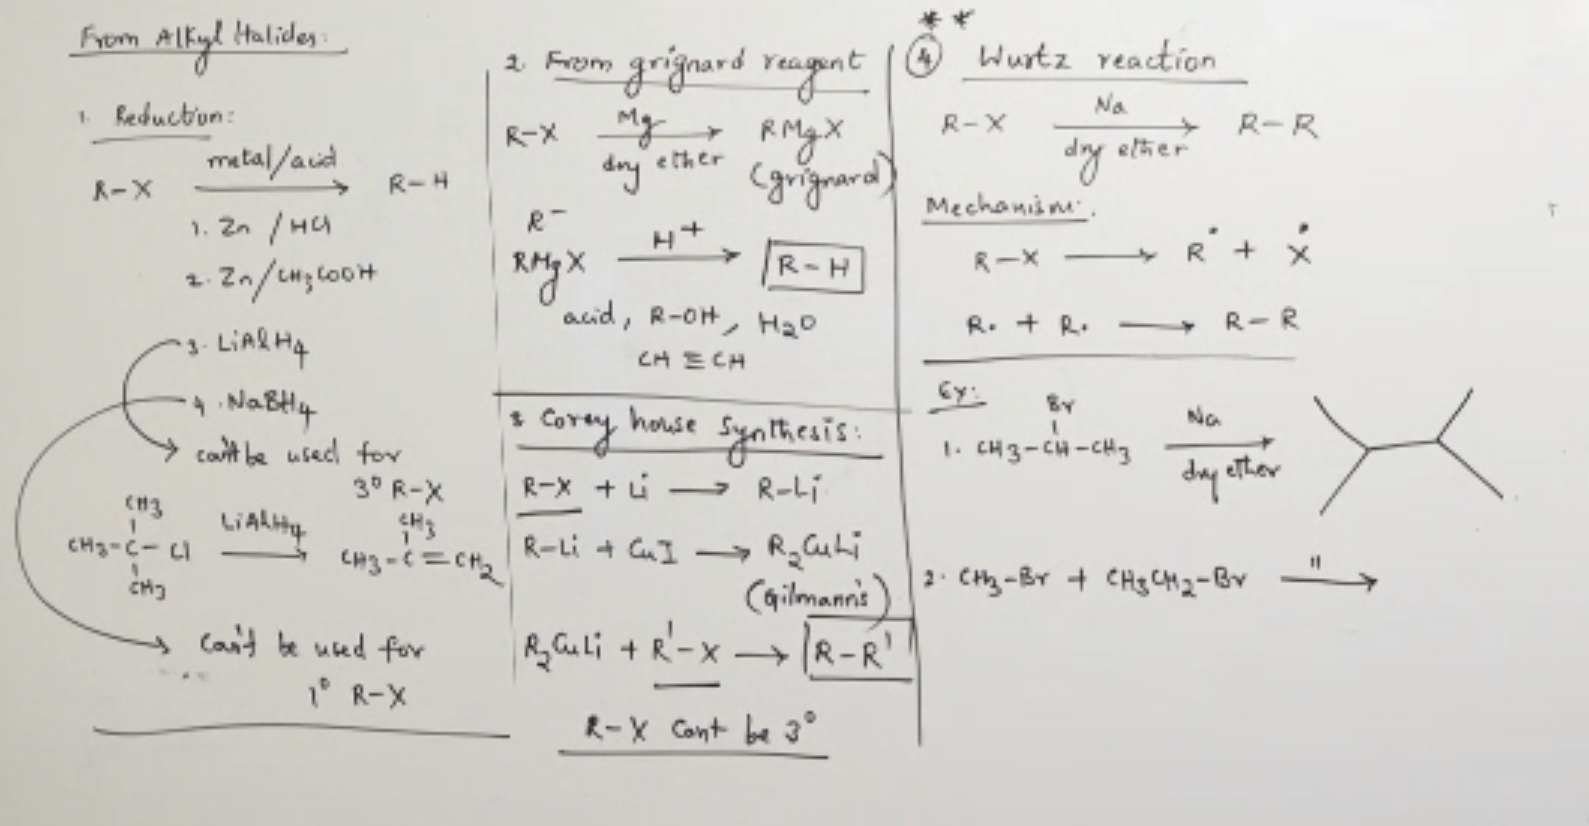 From Alkyl Halides:
1. Reduction:
R-X metal/acid → R-H
1. Zn / HCl
2. Zn/CH3COOH
3. LiAlH4
4. NaBH4
can't be used for
3° R-X
CH3
CH3-C-Cl LiAlH4 → CH3-C=CH2
CH3
CH3
can't be used for
1° R-X
2. From grignard reagent
R-X Mg → RMgX
dry ether (grignard)
R⁻
RMgX H+ → R-H
acid, R-OH, H2O
CH≡CH
3 Corey house Synthesis:
R-X + Li → R-Li
R-Li + CuI → R2CuLi
(Gilmann's)
R2CuLi + R'-X → R-R'
R-X Cant be 3°
** 
④ Wurtz reaction
R-X Na → R-R
dry ether
Mechanism:
R-X → R• + X•
R• + R• → R-R
Ex:
Br
1. CH3-CH-CH3 Na →
dry ether
2. CH3-Br + CH3CH2-Br " →